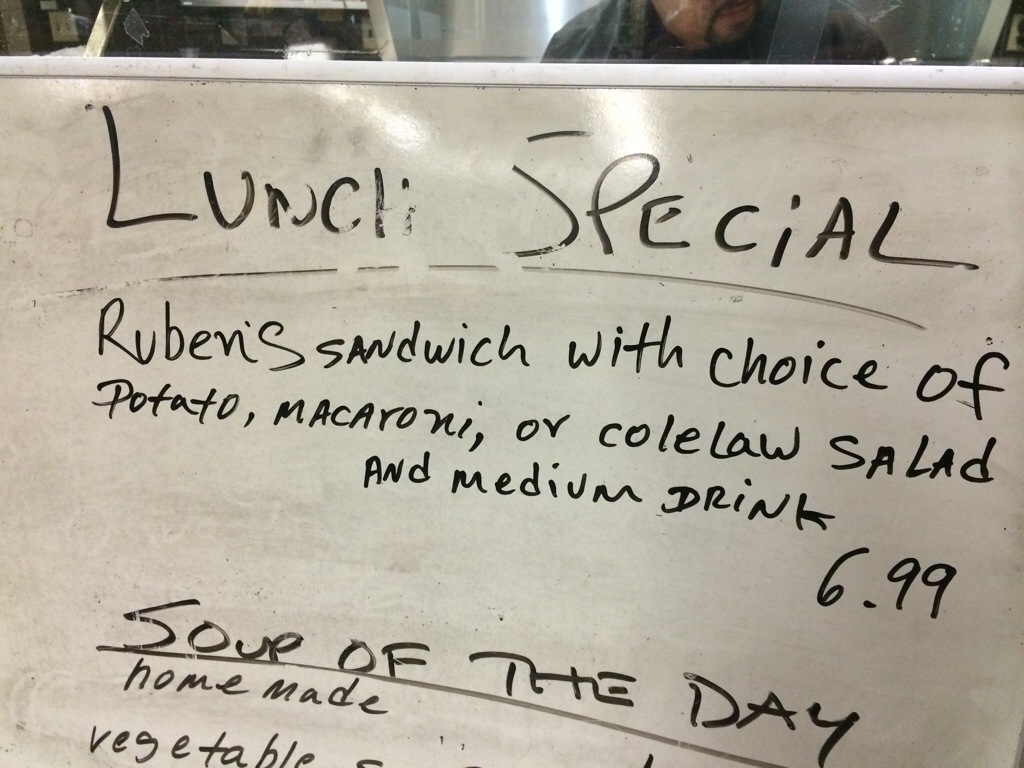 LUNCH SPECIAL
Ruben's SANdwich with choice of
Potato, MACAroni, or colelaw SALAd
ANd medium DRiNK
6.99
SOUP OF THE DAY
home made
vegetable